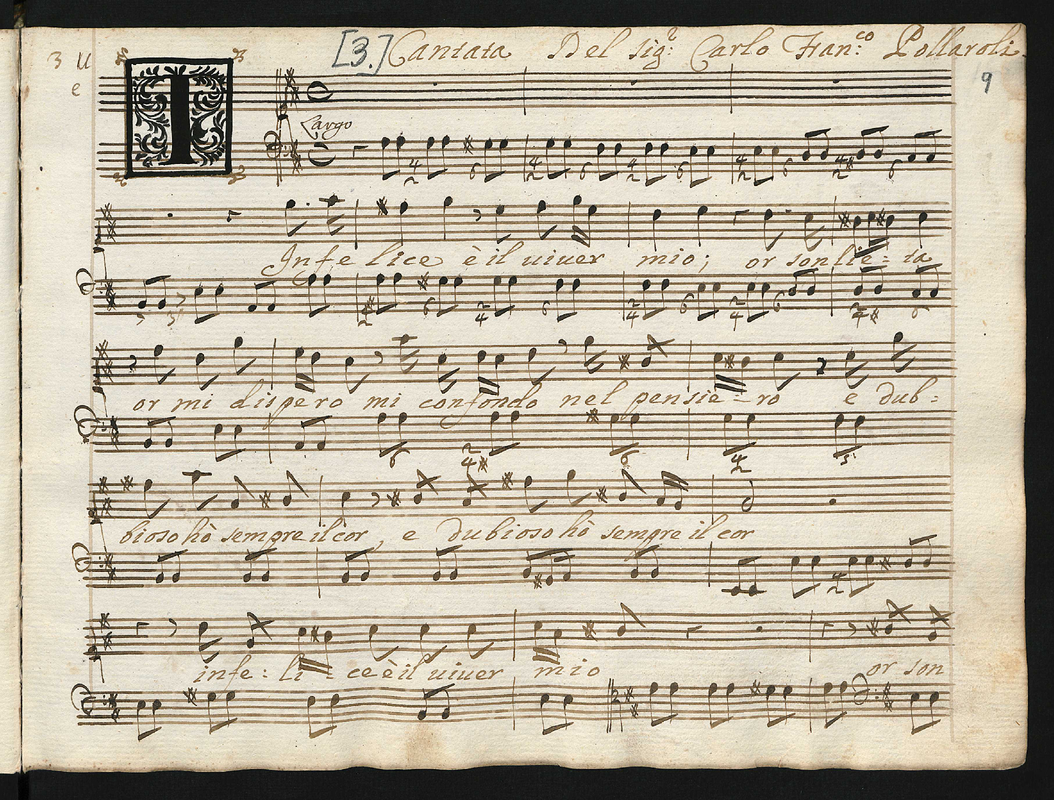 3 [3.] Cantata Del Sig.r Carlo Fran.co Pollaroli.
9
I
Largo
Infelice è il uiuer mio; or son lie-ta
or mi dispero mi confondo nel pensie-ro e dub=
bioso hò sempre il cor, e dubioso hò sempre il cor
infe:li-ce è il uiuer mio or son